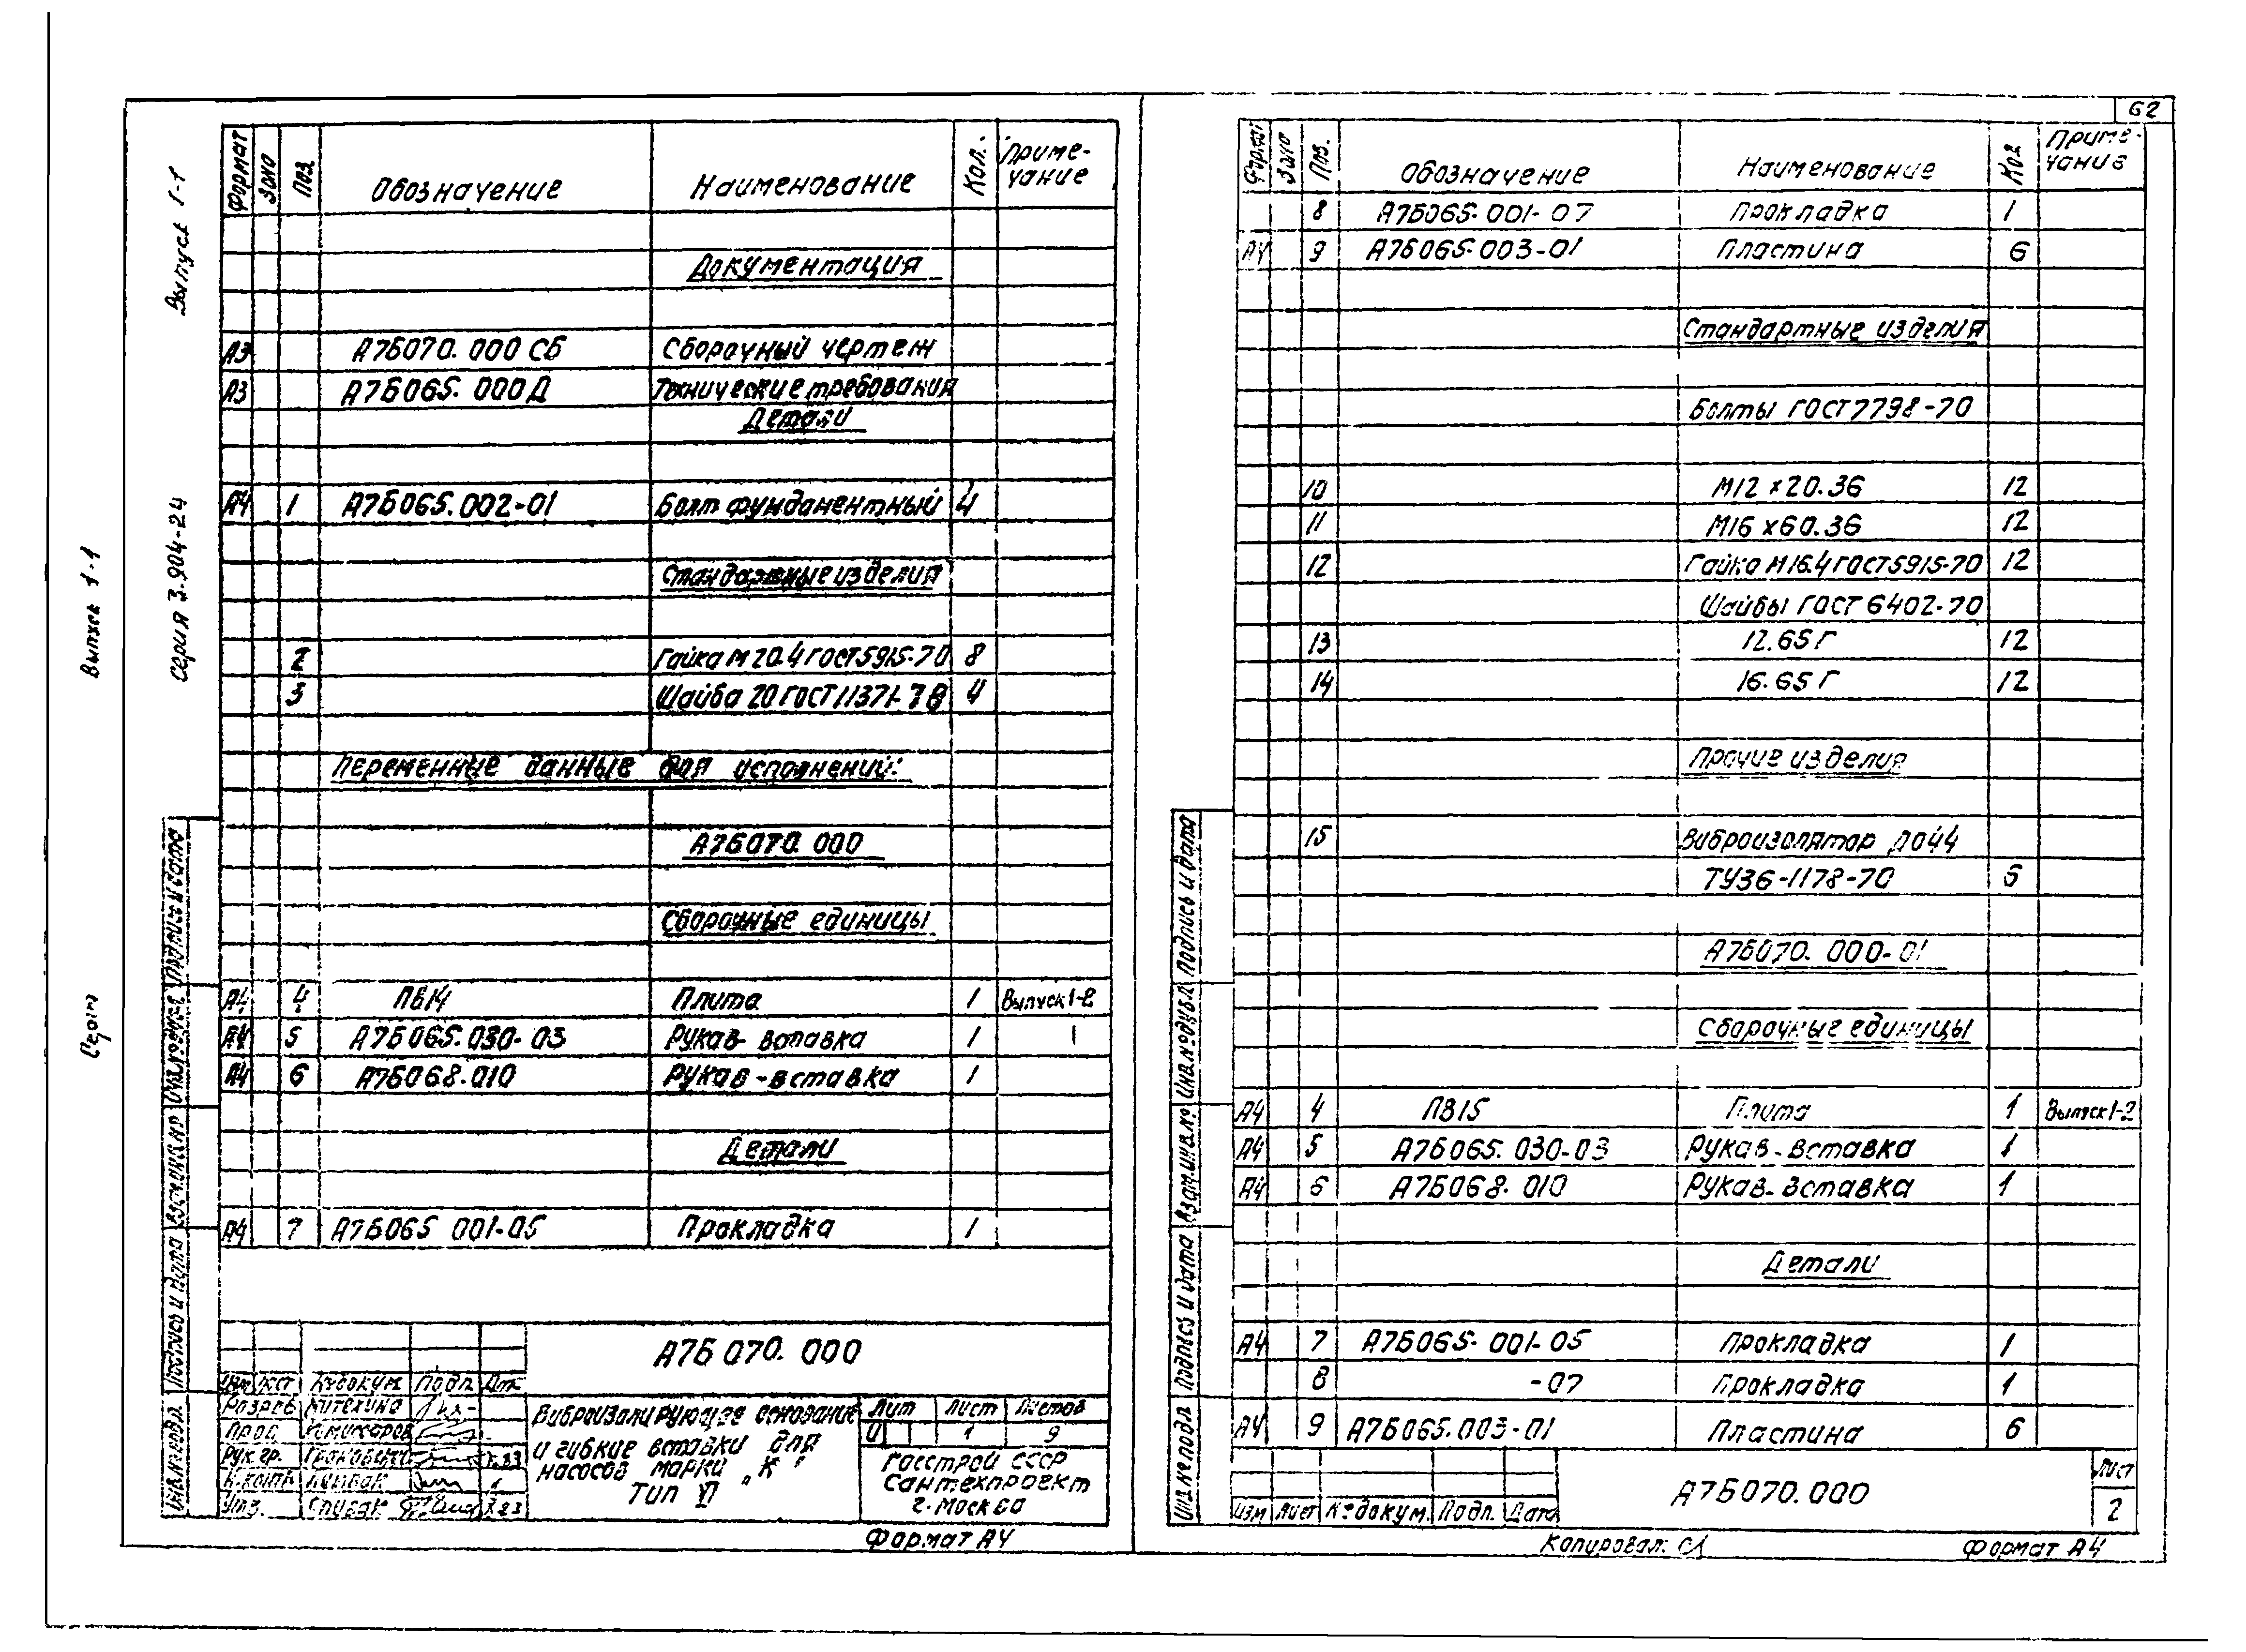 Выпуск 1-1
Серия 3.904-24
Выпуск 1-1
Формат Зона Поз. Обозначение Наименование Кол. Приме-
чание
Документация
А3 А7Б070.000 СБ Сборочный чертеж
А3 А7Б065.000Д Технические требования
Детали
А4 1 А7Б065.002-01 Болт фундаментный 4
Стандартные изделия
2 Гайка М20.4 ГОСТ 5915-70 8
3 Шайба 20 ГОСТ 11371-78 4
Переменные данные для исполнений:
А7Б070.000
Сборочные единицы
А4 4 ПВ14 Плита 1 Выпуск 1-2
А4 5 А7Б065.030-03 Рукав-вставка 1
А4 6 А7Б068.010 Рукав-вставка 1
Детали
А4 7 А7Б065 001-05 Прокладка 1
А7Б070.000
Изм Лист №докум. Подп. Дата
Разраб Митехина
Пров.
Рук.гр.
Н.контр
Утв. Спивак
Виброизолирующее основание
и гибкие вставки для
насосов марки „К"
Тип VI
Лит Лист Листов
И 1 9
Госстрой СССР
Сантехпроект
г. Москва
Формат А4
Инв.№подл. Подпись и дата Взам.инв.№ Инв.№дубл. Подпись и дата
62
Формат Зона Поз. Обозначение Наименование Кол Приме-
чание
8 А7Б065.001-07 Прокладка 1
А4 9 А7Б065.003-01 Пластина 6
Стандартные изделия
Болты ГОСТ 7798-70
10 М12х20.36 12
11 М16х60.36 12
12 Гайка М16.4 ГОСТ 5915-70 12
Шайбы ГОСТ 6402-70
13 12.65Г 12
14 16.65Г 12
Прочие изделия
15 Виброизолятор ДО44
ТУ36-1178-70 6
А7Б070.000-01
Сборочные единицы
А4 4 ПВ15 Плита 1 Выпуск 1-2
А4 5 А7Б065.030-03 Рукав-вставка 1
А4 6 А7Б068.010 Рукав-вставка 1
Детали
А4 7 А7Б065.001-05 Прокладка 1
8 -07 Прокладка 1
А4 9 А7Б065.003-01 Пластина 6
Изм Лист №докум. Подп. Дата
А7Б070.000
Лист
2
Копировал: Формат А4
Инв.№подл Подпись и дата Взам.инв.№ Инв.№дубл. Подпись и дата